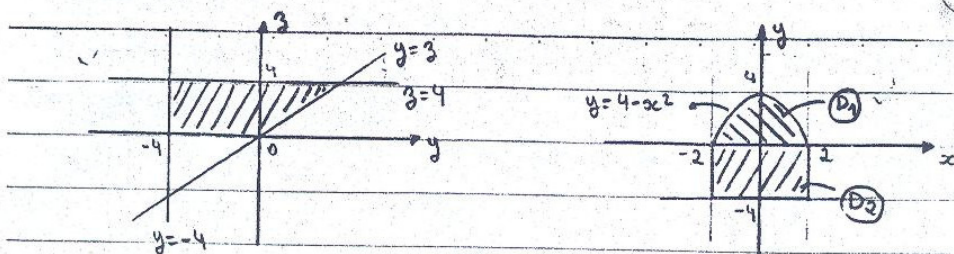 z
y = z
4
z = 4
-4
0
y
y = -4
y
4
y = 4 - x²
D1
-2
2
x
-4
D2